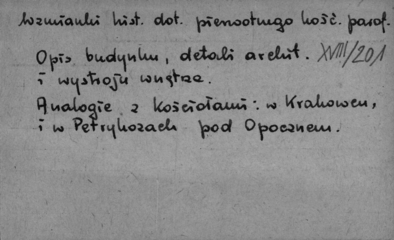 Wzmianki hist. dot. pierwotnego kość. paraf.
Opis budynku, detali archit. XVIII/201
i wystroju wnętrza.
Analogie z kościołami: w Krakowcu,
i w Petrykozach pod Opocznem.